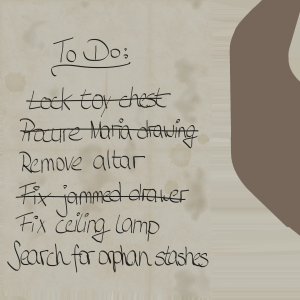 To Do:
Lock toy chest
Procure Maria drawing
Remove altar
Fix jammed drawer
Fix ceiling lamp
Search for orphan stashes